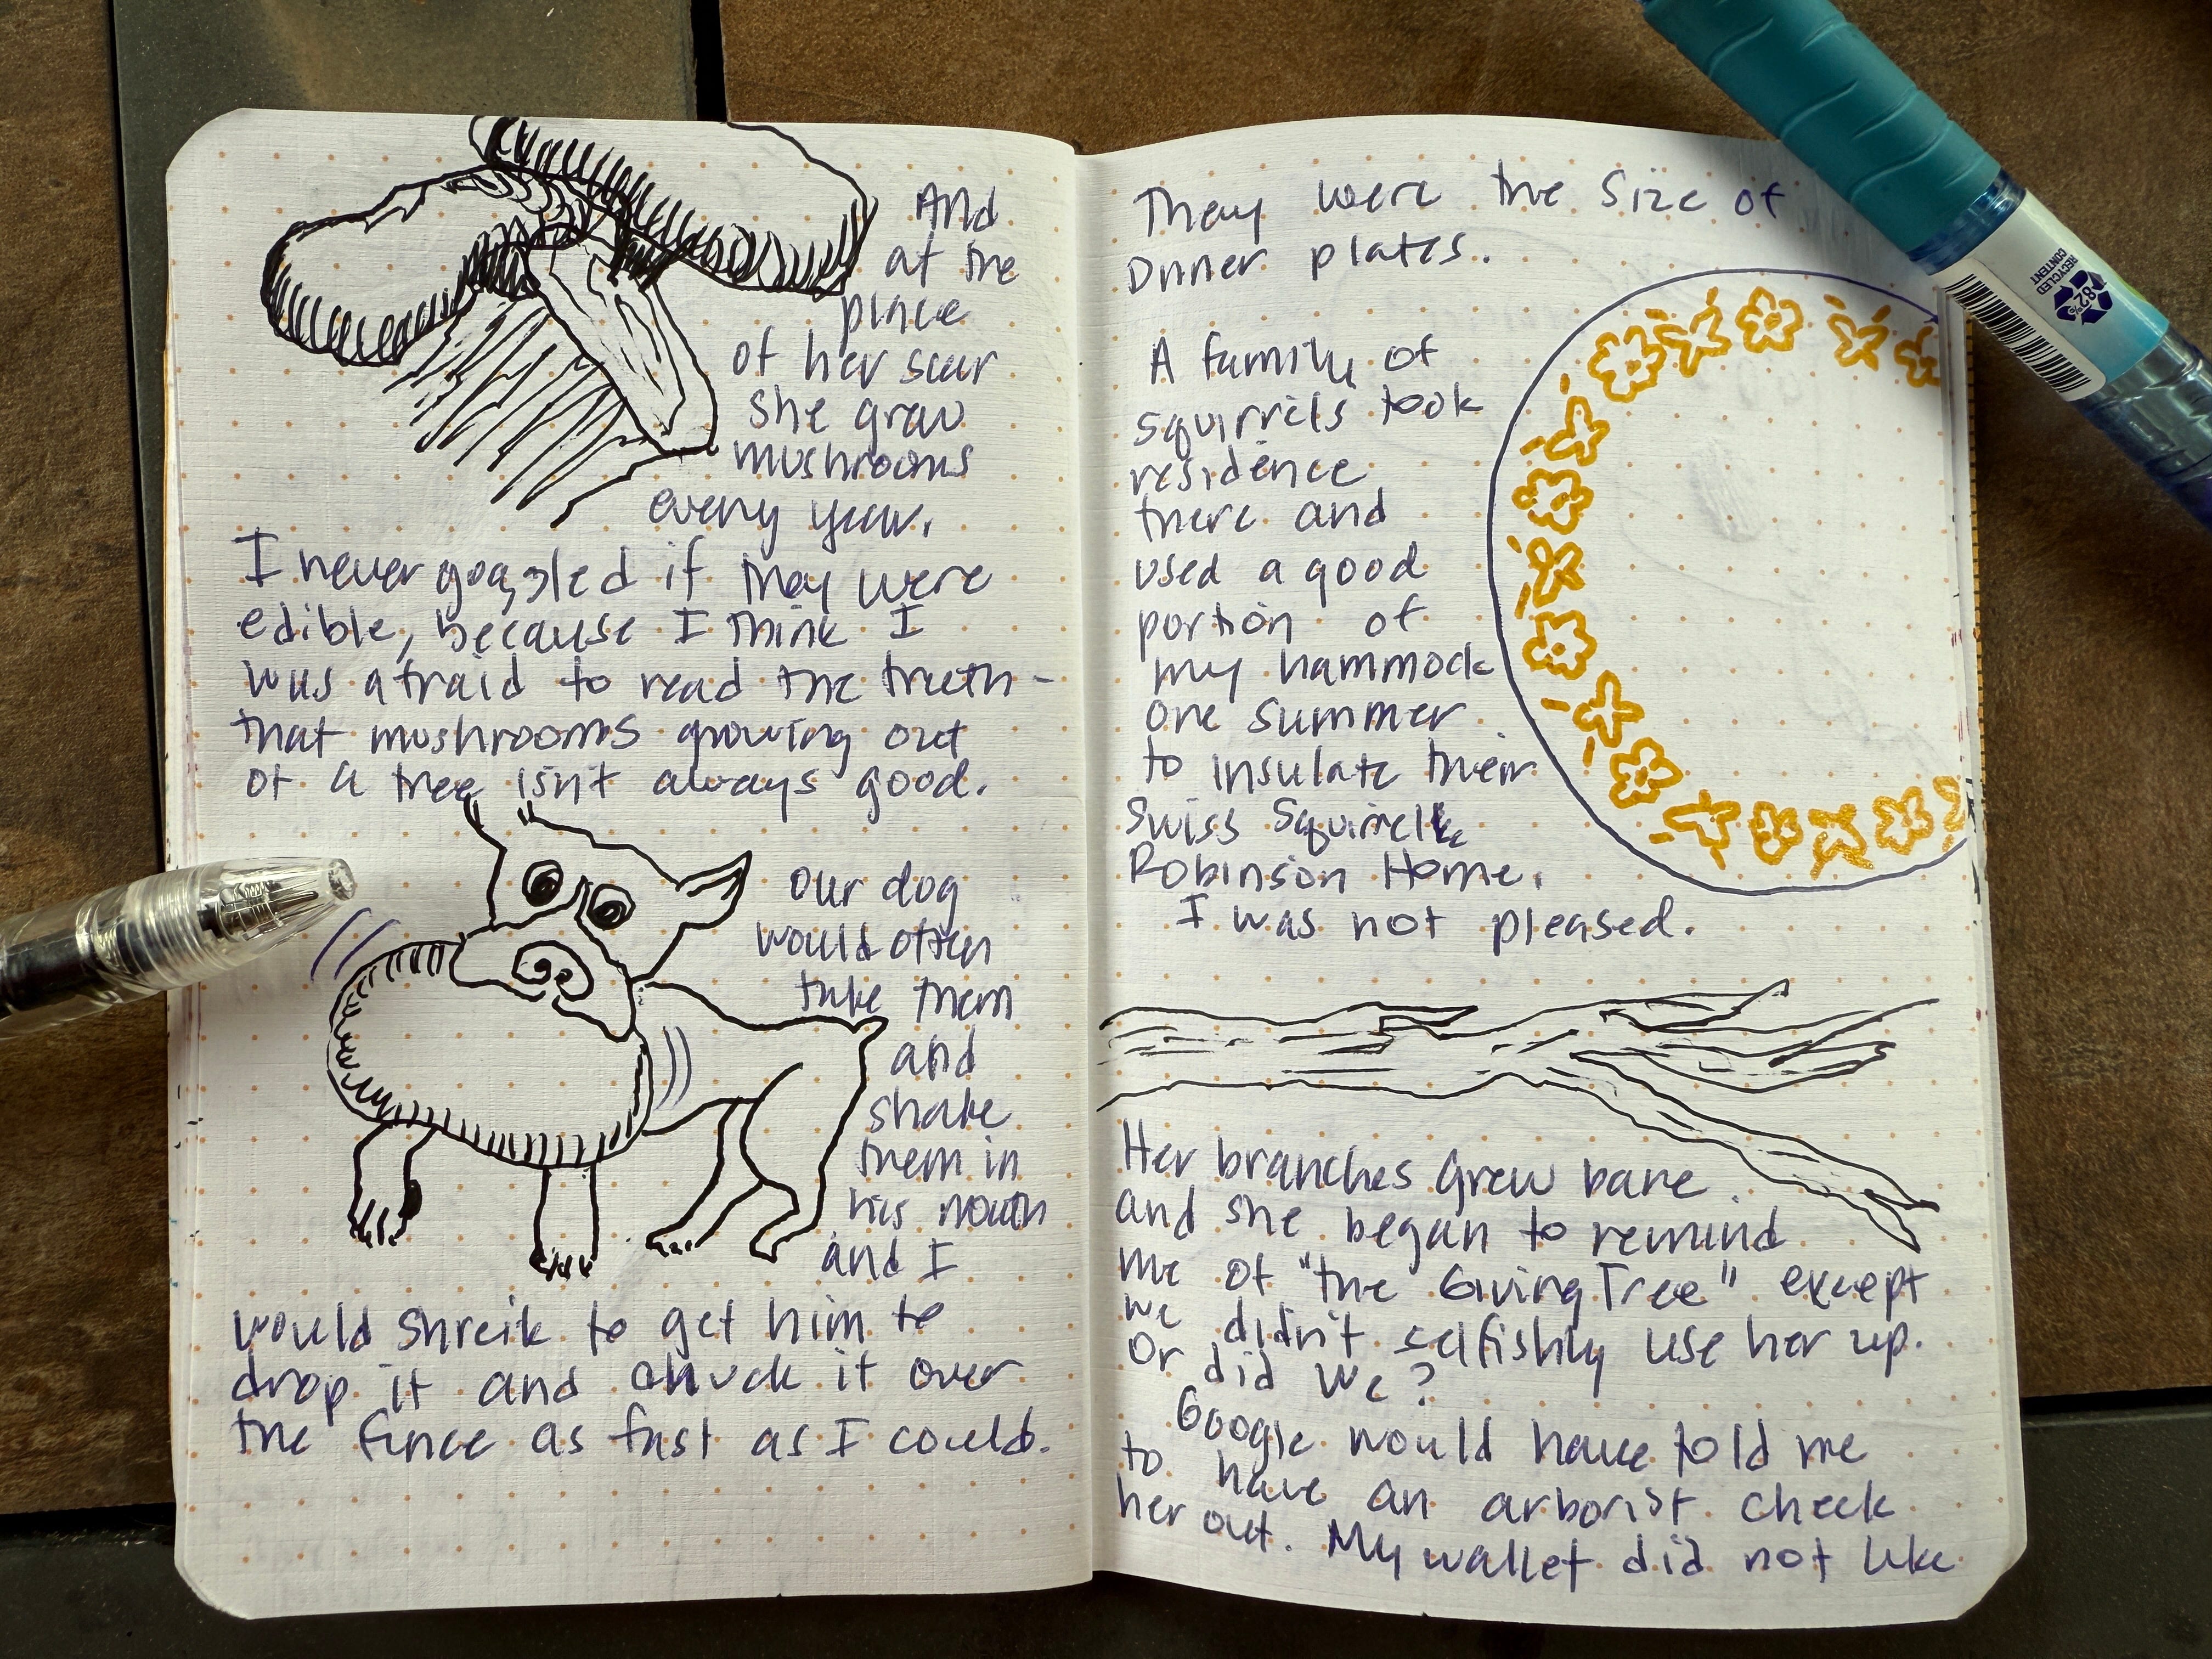 And
at the
place
of her scar
she grew
mushrooms
every year.
I never googled if they were
edible, because I think I
was afraid to read the truth -
that mushrooms growing out
of a tree isn't always good.
our dog
would often
take them
and
shake
them in
his mouth
and I
would shreik to get him to
drop it and chuck it over
the fence as fast as I could.
They were the size of
Dinner plates.
A family of
squirrels took
residence
there and
used a good
portion of
my hammock
one summer
to insulate their
Swiss Squirrell
Robinson Home.
I was not pleased.
Her branches grew bare
and she began to remind
me of "the Giving Tree" except
we didn't selfishly use her up.
Or did we?
Google would have told me
to have an arborist check
her out. My wallet did not like
82%
RECYCLED
CONTENT